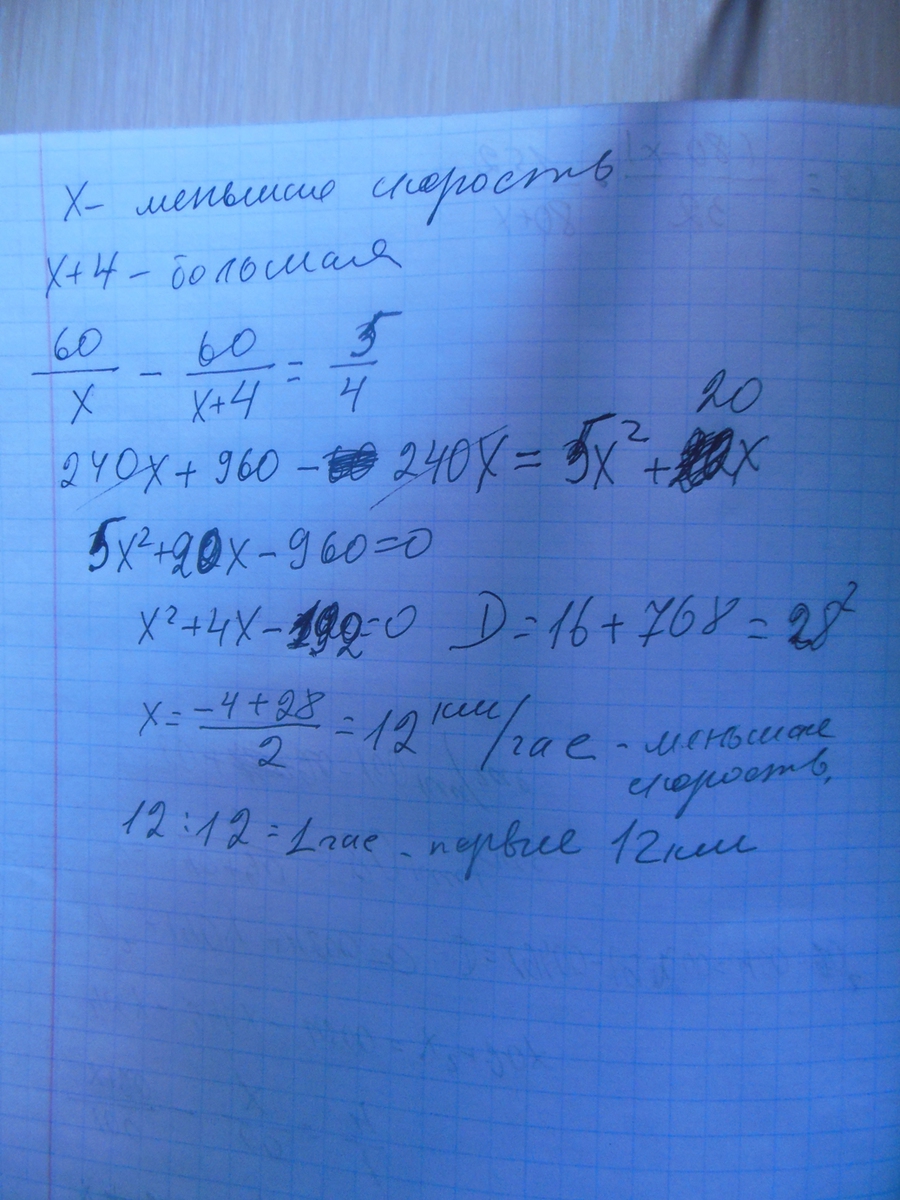 x – меньшая скорость
x+4 – большая
60/x – 60/(x+4) = 5/4
240x + 960 – 240x = 5x² + 20x
5x²+20x – 960=0
x²+4x–192=0 D=16+768=28²
x = (–4+28)/2 = 12 км/час – меньшая скорость
12:12=1 час – первые 12 км